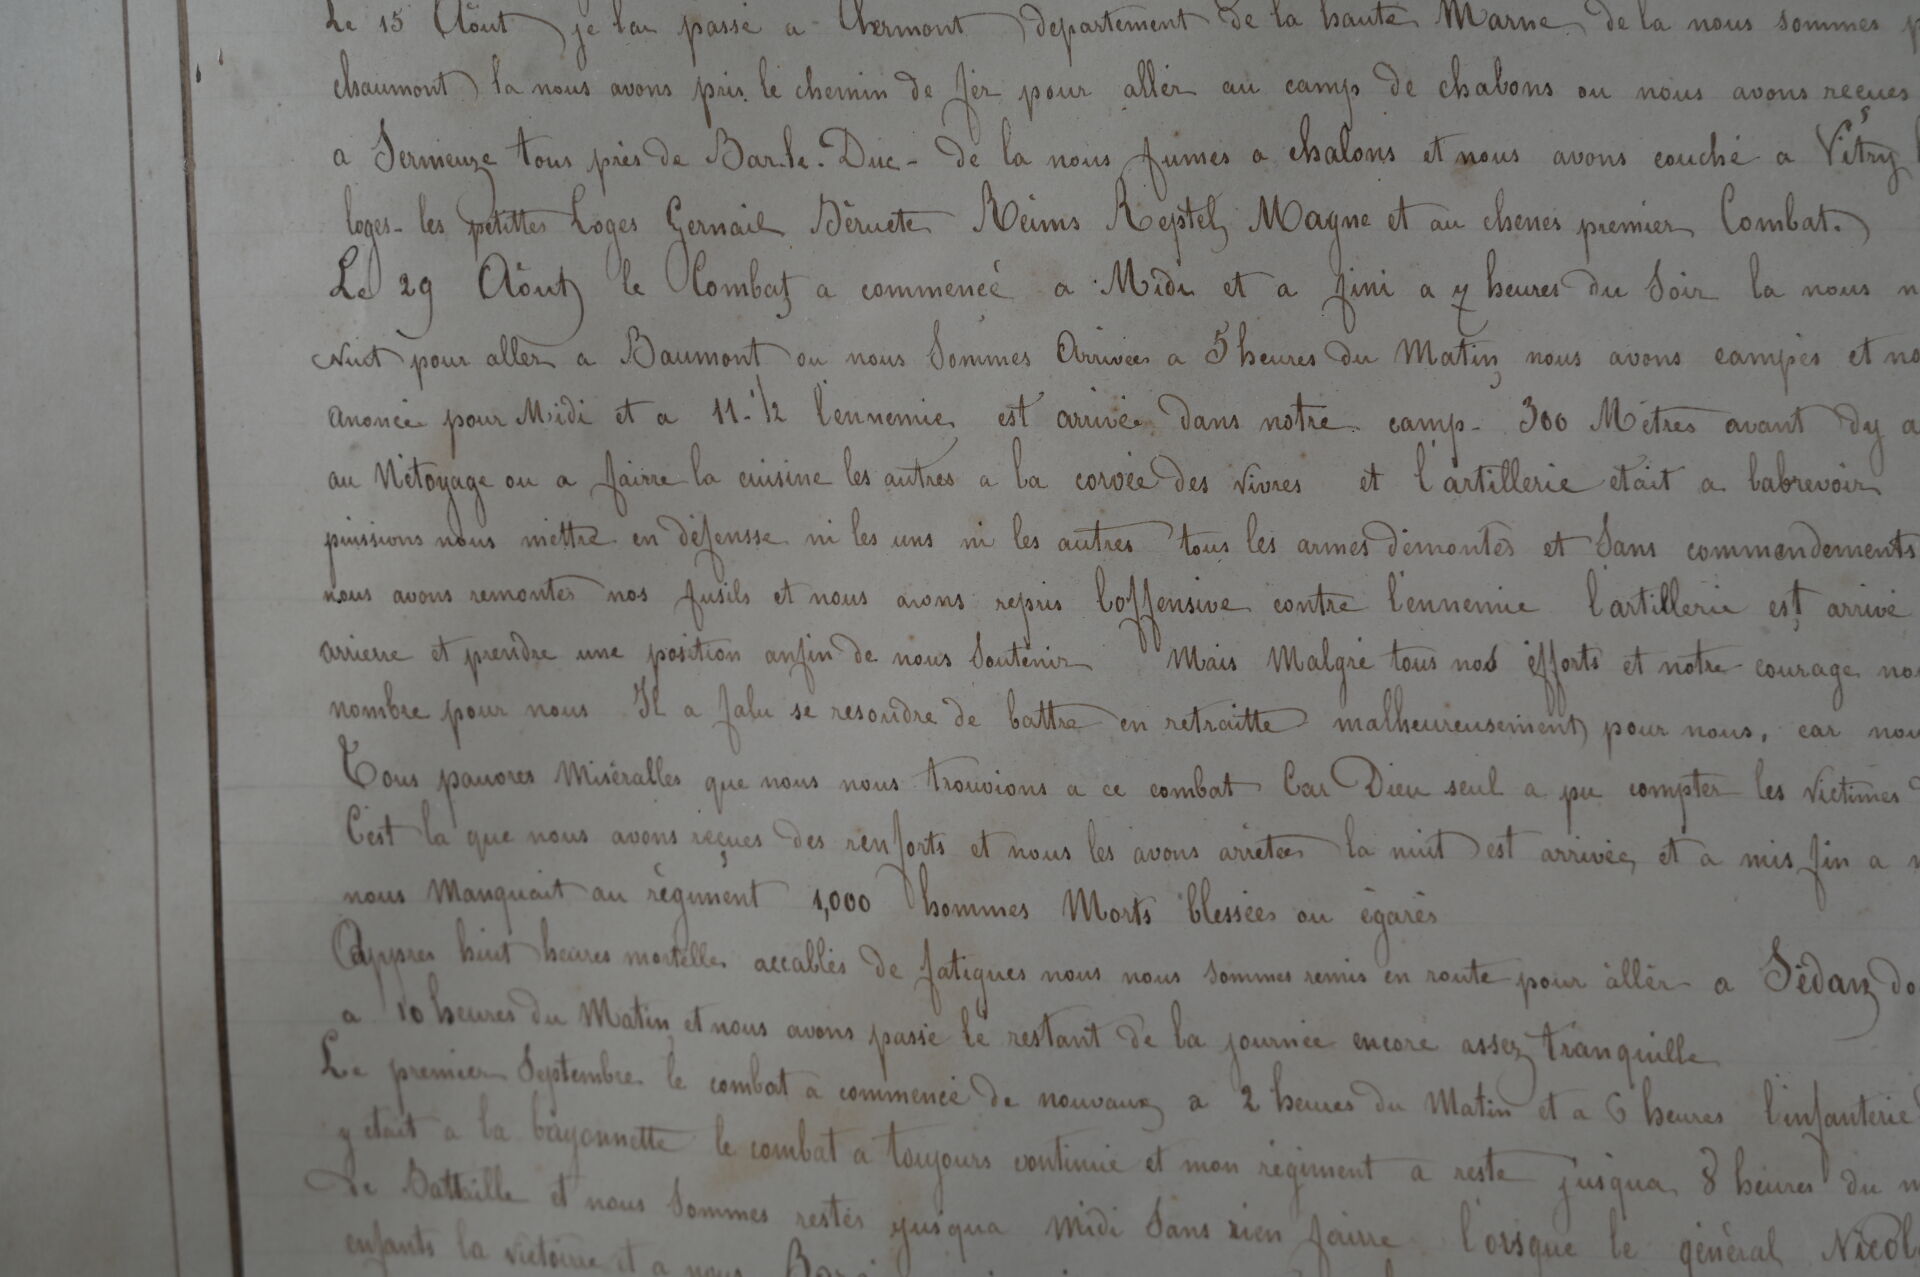 Le 15 Aôut je lai passé a Clermont departement de la haute Marne de la nous sommes
chaumont la nous avons pris le chemin de fer pour aller au camp de chalons ou nous avons reçues
a Sermeuze tous près de Bar-le-Duc - de la nous fumes a chalons et nous avons couché a Vitry
loges - les petittes Loges Gernail Béruete Reims Reptel Magne et au chenes premier Combat.
Le 29 Aôut le Combat a commencé a Midi et a fini a 7 heures du Soir la nous
Nuit pour aller a Baumont ou nous Sommes Arrivées a 5 heures du Matin nous avons campés et
anoncée pour Midi et a 11-1/2 l'ennemie est arrivée dans notre camp - 300 Mètres avant dy
au Nétoyage ou a fairre la cuisine les autres a la corvée des vivres et l'artillerie etait a labrevoir
puissions nous mettre en défensse ni les uns ni les autres tous les armes démontés et Sans commendements
nous avons remontés nos fusils et nous avons repris l'offensive contre l'ennemie l'artillerie est arrivé
arrierre et prendre une position anfin de nous Soutenir Mais Malgré tous nos éfforts et notre courage
nombre pour nous Il a falu se resoudre de battre en retraitte malheureusement pour nous, car
Tous pauvres Miséralles que nous nous trouvions a ce combat Car Dieu seul a pu compter les victimes
C'est la que nous avons reçues des renforts et nous les avons arrétées la nuit est arrivée et a mis fin a
nous Manquait au régiment 1,000 hommes Morts blessées ou égarés
Appres huit heures mortelles accablés de fatigues nous nous sommes remis en route pour allér a Sédan
a 10 heures du Matin et nous avons passé le restant de la journée encore assez tranquille
Le premier Septembre le combat a commencé de nouveaux a 2 heures du Matin et a 6 heures l'infanterie
y etait a la bayonnette le combat a toujours continué et mon régiment a resté jusqua 8 heures du
de Battaille et nous Sommes restés jusqua Midi Sans rien fairre l'orsque le général
enfants la victoire et a nous